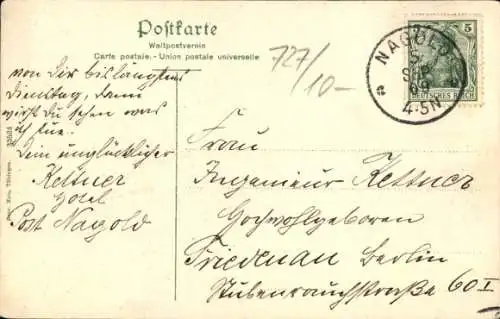 Postkarte
Weltpostverein
Carte postale. - Union postale universelle
727/10-
NAGOLD
5
SEP
09
4-5N
5
DEUTSCHES REICH
von Dir bis längstens
Dienstag, dann
wirst Du sehen was
ich tue.
Dein unglücklicher
Kettner
Hotel
Post Nagold
Frau
Ingenieur Kettner
Hochwohlgeboren
Friedenau Berlin
Stubenrauchstraße 60 I
Tübingen.